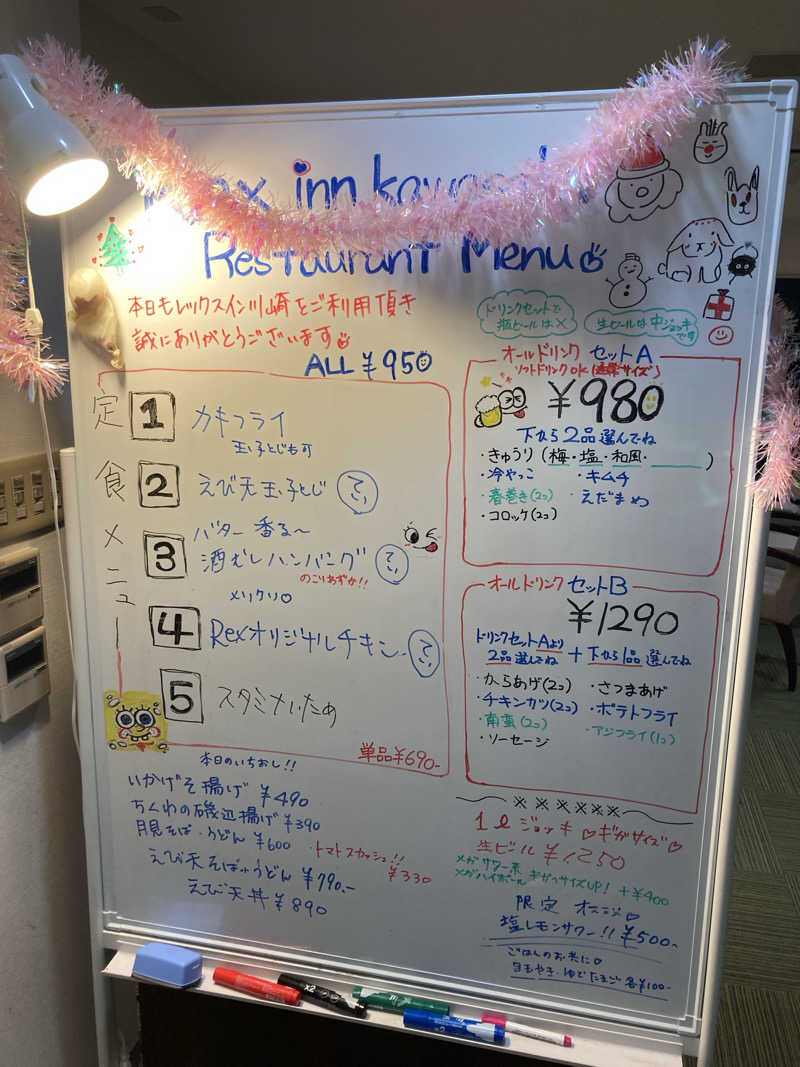 Rex inn kawasaki
Restaurant Menu
本日もレックスイン川崎をご利用頂き
誠にありがとうございます
ALL ¥950
定食メニュー
1 カキフライ
玉子とじも可
2 えび天玉子とじ
バター香る〜
3 酒むしハンバーグ
のこりわずか!!
メリクリ♡
4 Rexオリジナルチキン
5 スタミナいため
単品¥690-
本日のいちおし!!
いかげそ揚げ ¥490
ちくわの磯辺揚げ ¥390
月見そば・うどん ¥600
・トマトスカッシュ!!
¥330
えび天そば・うどん ¥790.-
えび天丼 ¥890
ドリンクセットで
瓶ビールは×
生ビールは中ジョッキ
です
オールドリンク セットA
ソフトドリンクOK(通常サイズ)
¥980
下から2品選んでね
・きゅうり(梅・塩・和風・ )
・冷やっこ ・キムチ
・春巻き(2コ) ・えだまめ
・コロッケ(2コ)
オールドリンク セットB
¥1290
ドリンクセットAより
2品選んでね + 下から1品選んでね
・からあげ(2コ) ・さつまあげ
・チキンカツ(2コ) ・ポテトフライ
・南蛮(2コ) ・アジフライ(1コ)
・ソーセージ
※※※※※※
1ℓジョッキ ♡ギガサイズ♡
生ビール ¥1,250
メガサワー系
メガハイボール ギガサイズUP! +¥400
限定
塩レモンサワー!! ¥500-
ごはんのお共に♡
玉子やき・ゆでたまご 各¥100-